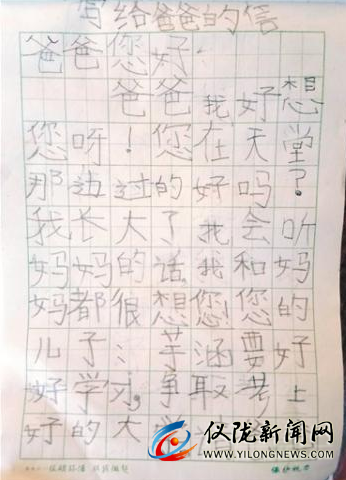 写给爸爸的信
爸爸您好:
爸爸我好想
您呀!您在天堂
那边过的好吗?
我长大了我会听
妈妈的话我和妈
妈都很想您!您的
儿子:芋涵要好
好学习,争取考上
好的大学
仪陇新闻网
WWW.YILONGNEWS.COM
保护视力